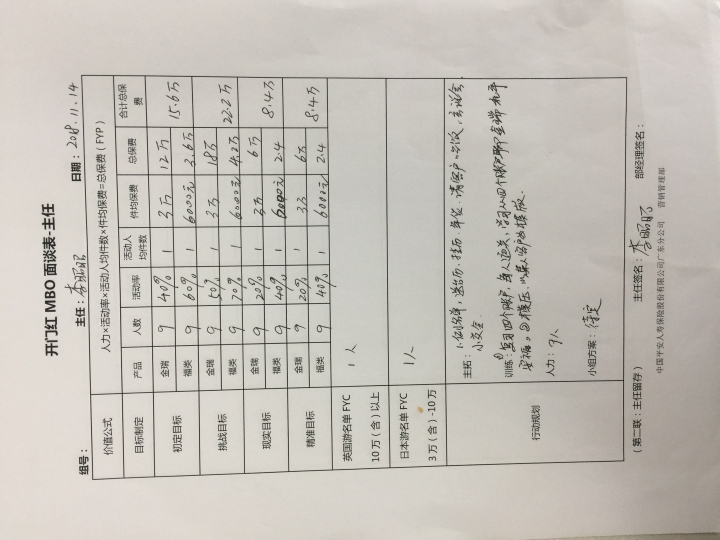 开门红 MBO 面谈表-主任
组号： 主任：李昭昭 日期：2018.11.14
价值公式 人力×活动率×活动人均件数×件均保费=总保费（FYP）
目标制定 产品 人数 活动率 活动人均件数 件均保费 总保费 合计总保费
初定目标 金瑞 9 40% 1 3万 12万 15.6万
福类 9 60% 1 6000元 3.6万
挑战目标 金瑞 9 50% 1 3万 18万 22.2万
福类 9 70% 1 6000元 4.2万
现实目标 金瑞 9 20% 1 3万 6万 8.4万
福类 9 40% 1 6000元 2.4
精准目标 金瑞 9 20% 1 3万 6万 8.4万
福类 9 40% 1 6000元 2.4
英国游名单 FYC 10 万（含）以上 1人
日本游名单 FYC 3 万（含）-10 万 1人
行动规划
主拓：1.列名单，送台历、挂历、年货、请客户
小交会
训练：
人力：9人
小组方案：待定
（第二联：主任留存） 主任签名：李昭昭 部经理签名：
中国平安人寿保险股份有限公司广东分公司 营销管理部